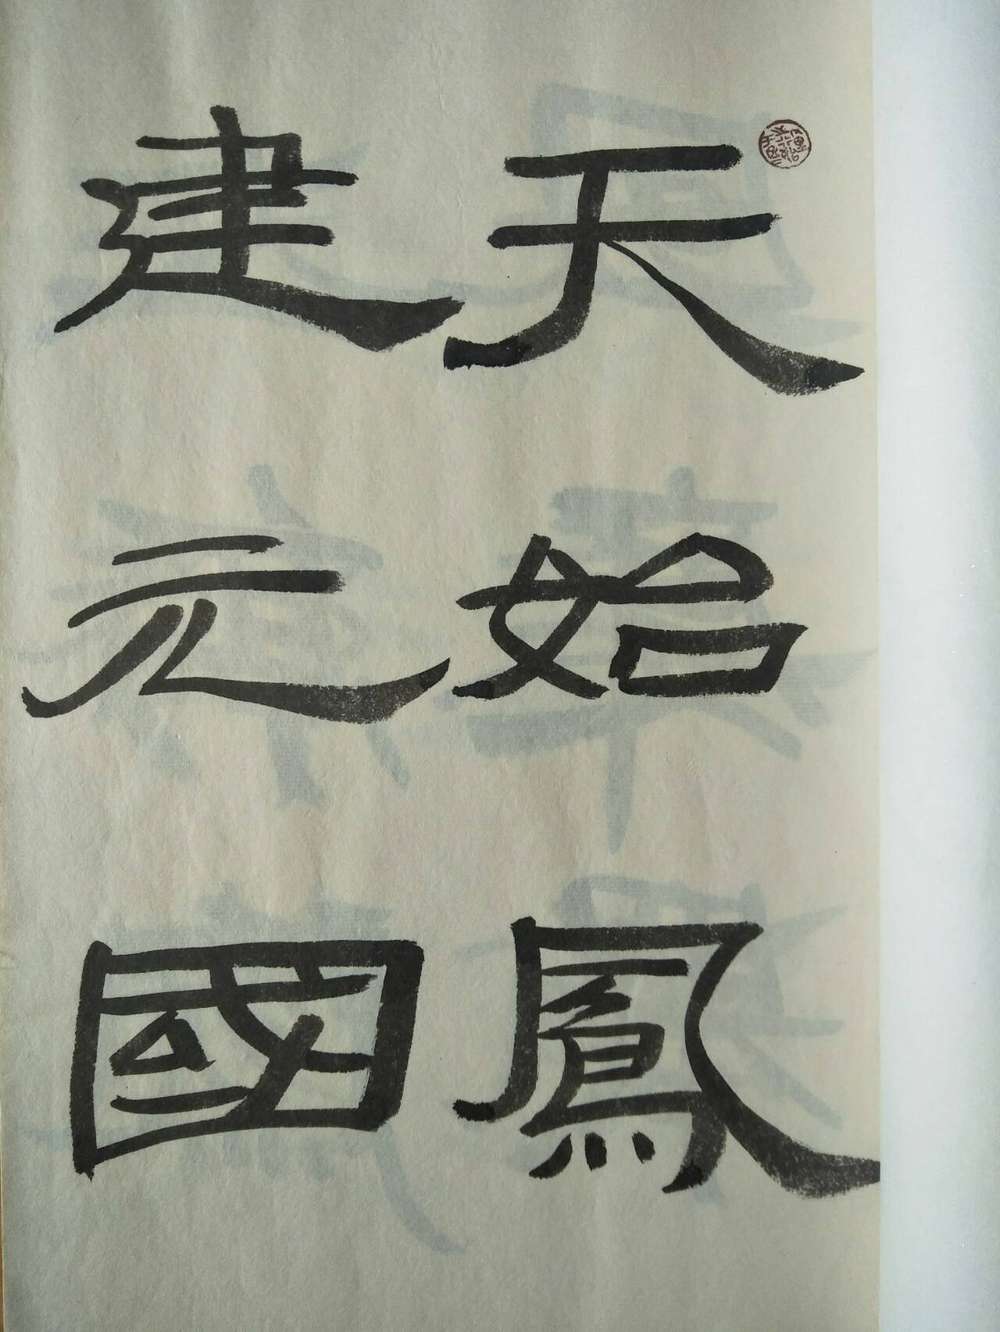 天始鳳
建元國